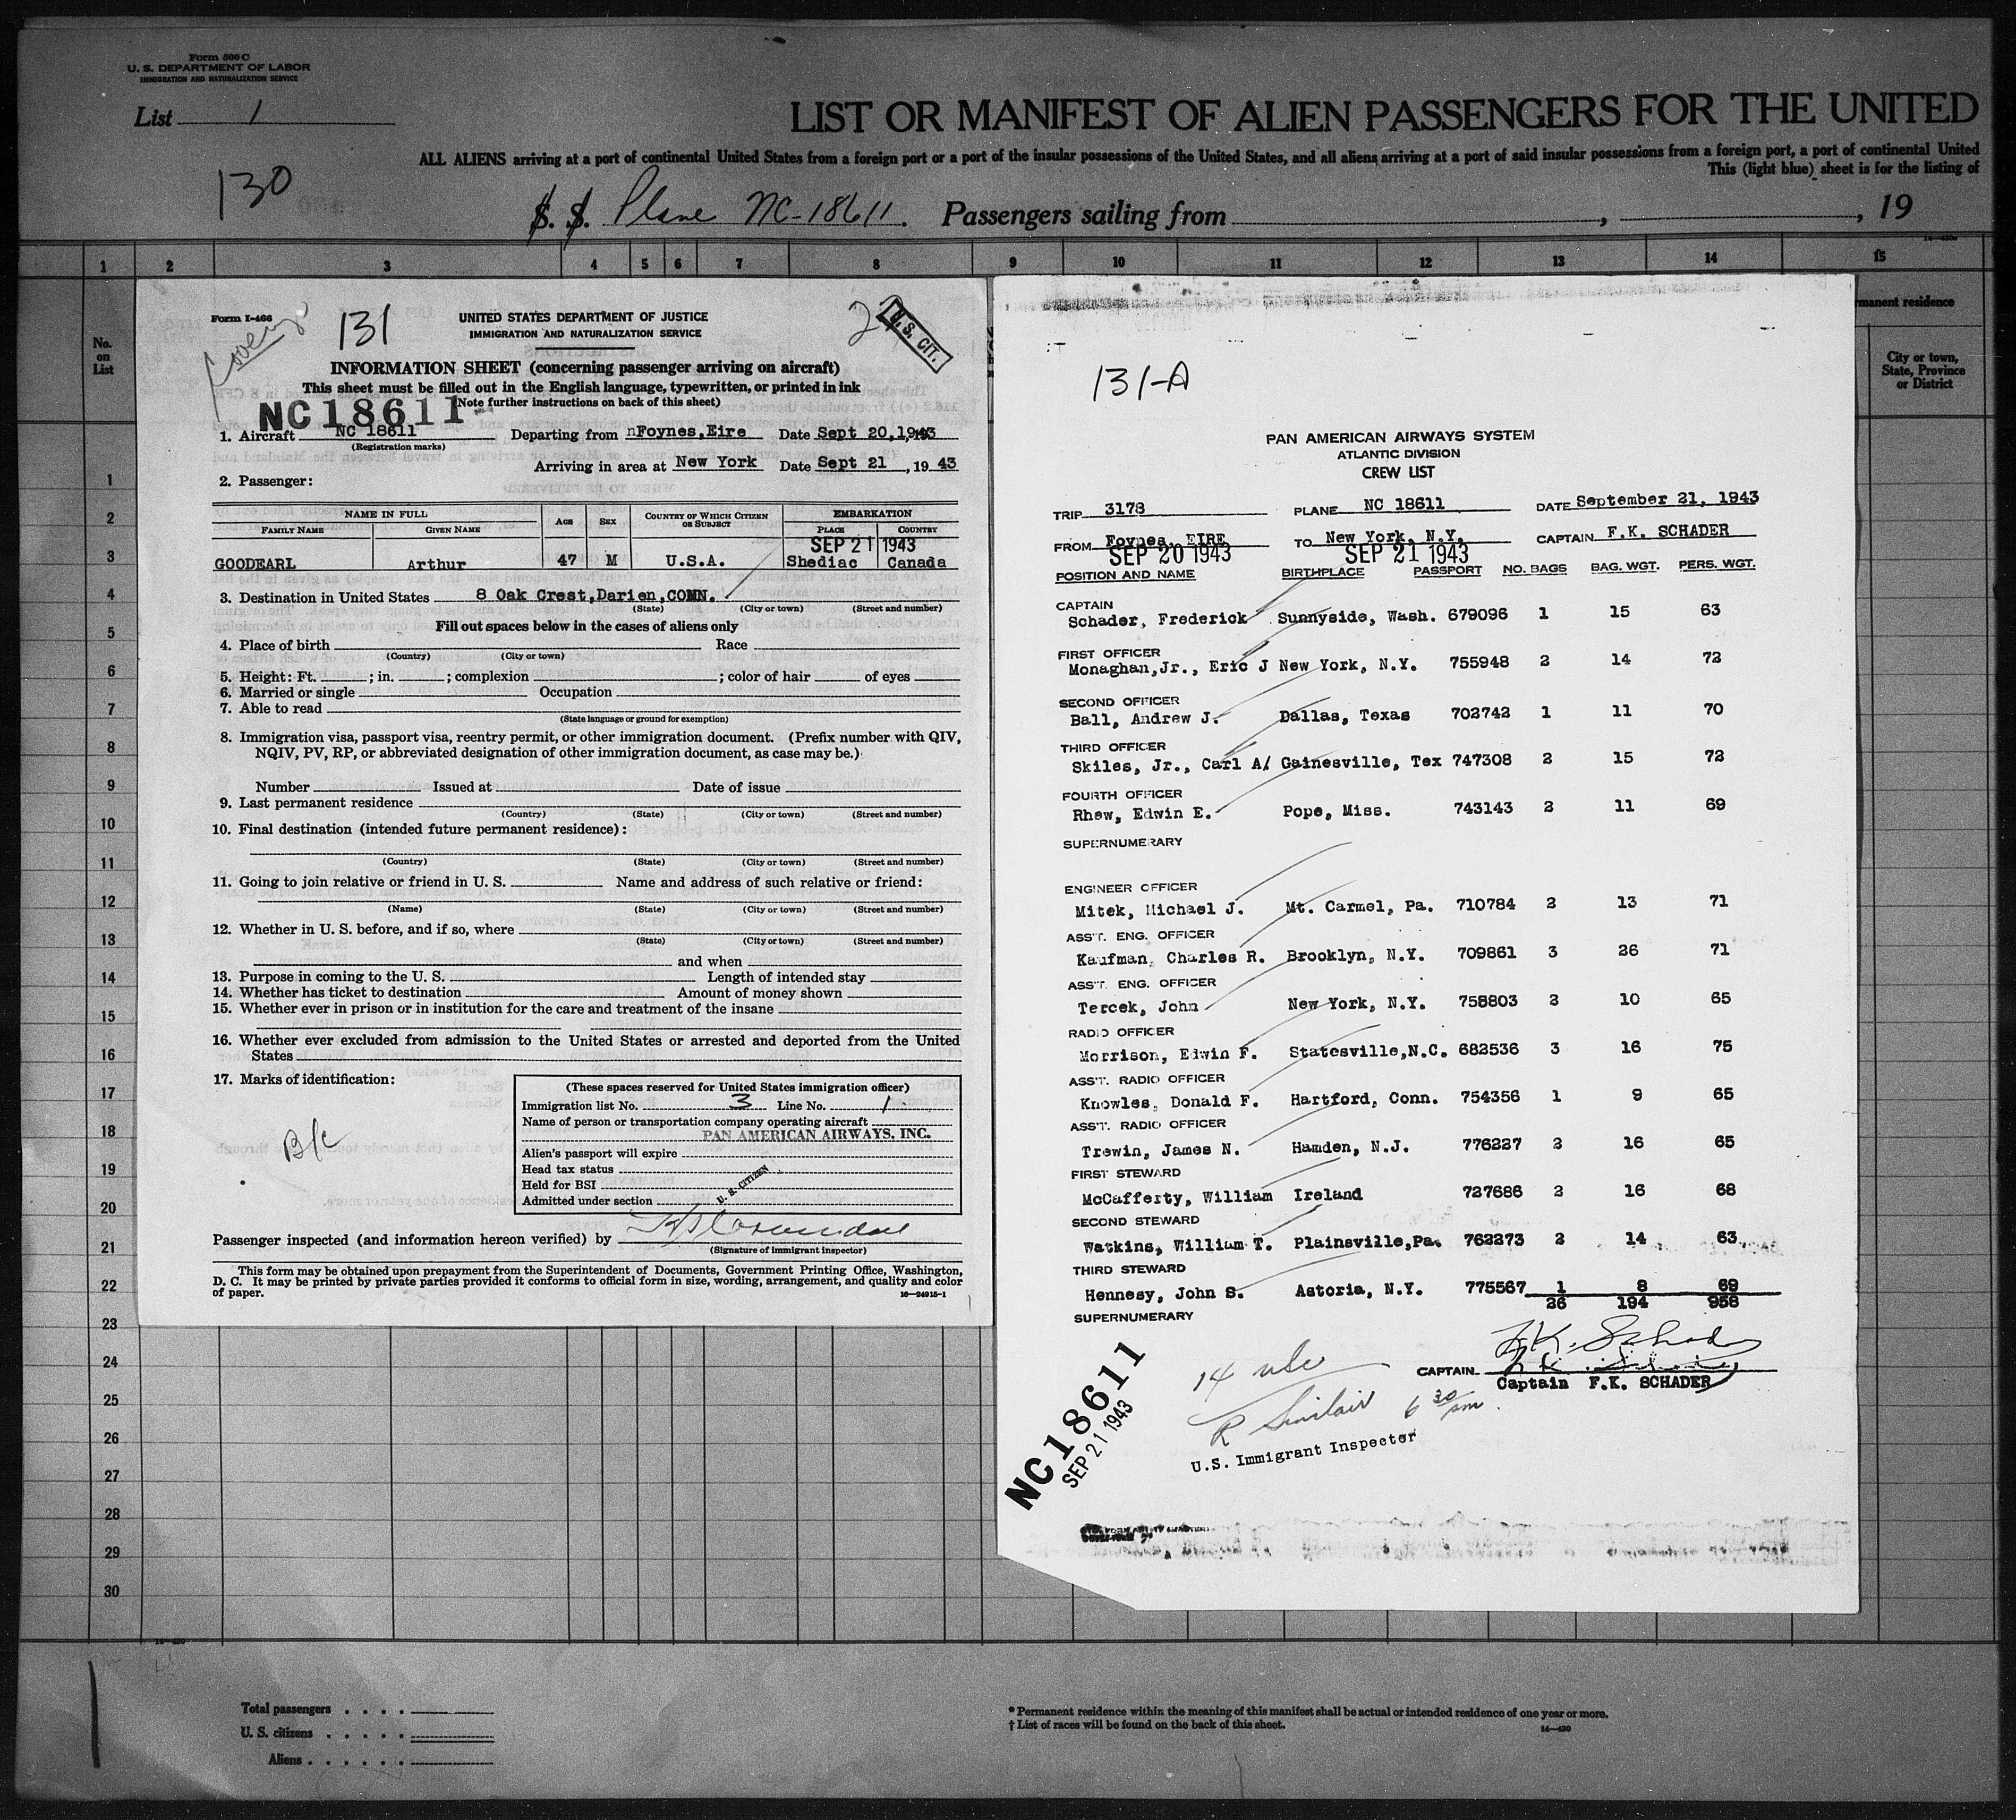 Form 500 C
U. S. DEPARTMENT OF LABOR
IMMIGRATION AND NATURALIZATION SERVICE
List 1
LIST OR MANIFEST OF ALIEN PASSENGERS FOR THE UNITED
ALL ALIENS arriving at a port of continental United States from a foreign port or a port of the insular possessions of the United States, and all aliens arriving at a port of said insular possessions from a foreign port, a port of continental United
This (light blue) sheet is for the listing of
130
S. S. Plane NC-18611. Passengers sailing from , , 19
1 2 3 4 5 6 7 8 9 10 11 12 13 14 15
No. on List
manent residence
City or town, State, Province or District
1
2
3
4
5
6
7
8
9
10
11
12
13
14
15
16
17
18
19
20
21
22
23
24
25
26
27
28
29
30
Form I-466
131
UNITED STATES DEPARTMENT OF JUSTICE
IMMIGRATION AND NATURALIZATION SERVICE
U.S. CIT.
INFORMATION SHEET (concerning passenger arriving on aircraft)
This sheet must be filled out in the English language, typewritten, or printed in ink
(Note further instructions on back of this sheet)
NC18611
1. Aircraft NC 18611 Departing from nFoynes,Eire Date Sept 20,1943
(Registration marks)
Arriving in area at New York Date Sept 21, 1943
2. Passenger:
NAME IN FULL AGE SEX COUNTRY OF WHICH CITIZEN OR SUBJECT EMBARKATION
FAMILY NAME GIVEN NAME PLACE COUNTRY
SEP 21 1943
GOODEARL Arthur 47 M U.S.A. Shediac Canada
3. Destination in United States 8 Oak Crest,Darien,CONN.
(State) (City or town) (Street and number)
Fill out spaces below in the cases of aliens only
4. Place of birth Race
(Country) (City or town)
5. Height: Ft. ; in. ; complexion ; color of hair of eyes
6. Married or single Occupation
7. Able to read
(State language or ground for exemption)
8. Immigration visa, passport visa, reentry permit, or other immigration document. (Prefix number with QIV,
NQIV, PV, RP, or abbreviated designation of other immigration document, as case may be.)
Number Issued at Date of issue
9. Last permanent residence
(Country) (State) (City or town) (Street and number)
10. Final destination (intended future permanent residence):
(Country) (State) (City or town) (Street and number)
11. Going to join relative or friend in U. S. Name and address of such relative or friend:
(Name) (State) (City or town) (Street and number)
12. Whether in U. S. before, and if so, where
(State) (City or town) (Street and number)
and when
13. Purpose in coming to the U. S. Length of intended stay
14. Whether has ticket to destination Amount of money shown
15. Whether ever in prison or in institution for the care and treatment of the insane
16. Whether ever excluded from admission to the United States or arrested and deported from the United
States
17. Marks of identification:
B/c
(These spaces reserved for United States immigration officer)
Immigration list No. 3 Line No. 1
Name of person or transportation company operating aircraft
PAN AMERICAN AIRWAYS, INC.
Alien's passport will expire
Head tax status
Held for BSI
Admitted under section
U. S. CITIZEN
Passenger inspected (and information hereon verified) by
(Signature of immigrant inspector)
This form may be obtained upon prepayment from the Superintendent of Documents, Government Printing Office, Washington,
D. C. It may be printed by private parties provided it conforms to official form in size, wording, arrangement, and quality and color
of paper.
16—24915-1
131-A
PAN AMERICAN AIRWAYS SYSTEM
ATLANTIC DIVISION
CREW LIST
TRIP 3178 PLANE NC 18611 DATE September 21, 1943
FROM Foynes, EIRE TO New York, N.Y. CAPTAIN F.K. SCHADER
SEP 20 1943 SEP 21 1943
POSITION AND NAME BIRTHPLACE PASSPORT NO. BAGS BAG. WGT. PERS. WGT.
CAPTAIN
Schader, Frederick Sunnyside, Wash. 679096 1 15 63
FIRST OFFICER
Monaghan,Jr., Eric J New York, N.Y. 755948 2 14 72
SECOND OFFICER
Ball, Andrew J. Dallas, Texas 702742 1 11 70
THIRD OFFICER
Skiles, Jr., Carl A/ Gainesville, Tex 747308 2 15 72
FOURTH OFFICER
Rhew, Edwin E. Pope, Miss. 743143 2 11 69
SUPERNUMERARY
ENGINEER OFFICER
Mitek, Michael J. Mt. Carmel, Pa. 710784 2 13 71
ASS'T. ENG. OFFICER
Kaufman, Charles R. Brooklyn, N.Y. 709861 3 26 71
ASS'T. ENG. OFFICER
Tercek, John New York, N.Y. 758803 2 10 65
RADIO OFFICER
Morrison, Edwin F. Statesville,N.C. 682536 3 16 75
ASS'T. RADIO OFFICER
Knowles, Donald F. Hartford, Conn. 754356 1 9 65
ASS'T. RADIO OFFICER
Trewin, James N. Hamden, N.J. 776227 2 16 65
FIRST STEWARD
McCafferty, William Ireland 727686 2 16 68
SECOND STEWARD
Watkins, William T. Plainsville,Pa. 762273 2 14 63
THIRD STEWARD
Hennesy, John S. Astoria, N.Y. 775567 1 8 69
26 194 958
SUPERNUMERARY
F.K. Schader
CAPTAIN
Captain F.K. SCHADER
14 usc
R Sinclair 6 30 pm
U.S. Immigrant Inspector
NC18611
SEP 21 1943
Total passengers
U. S. citizens
Aliens
* Permanent residence within the meaning of this manifest shall be actual or intended residence of one year or more.
† List of races will be found on the back of this sheet.
14—430